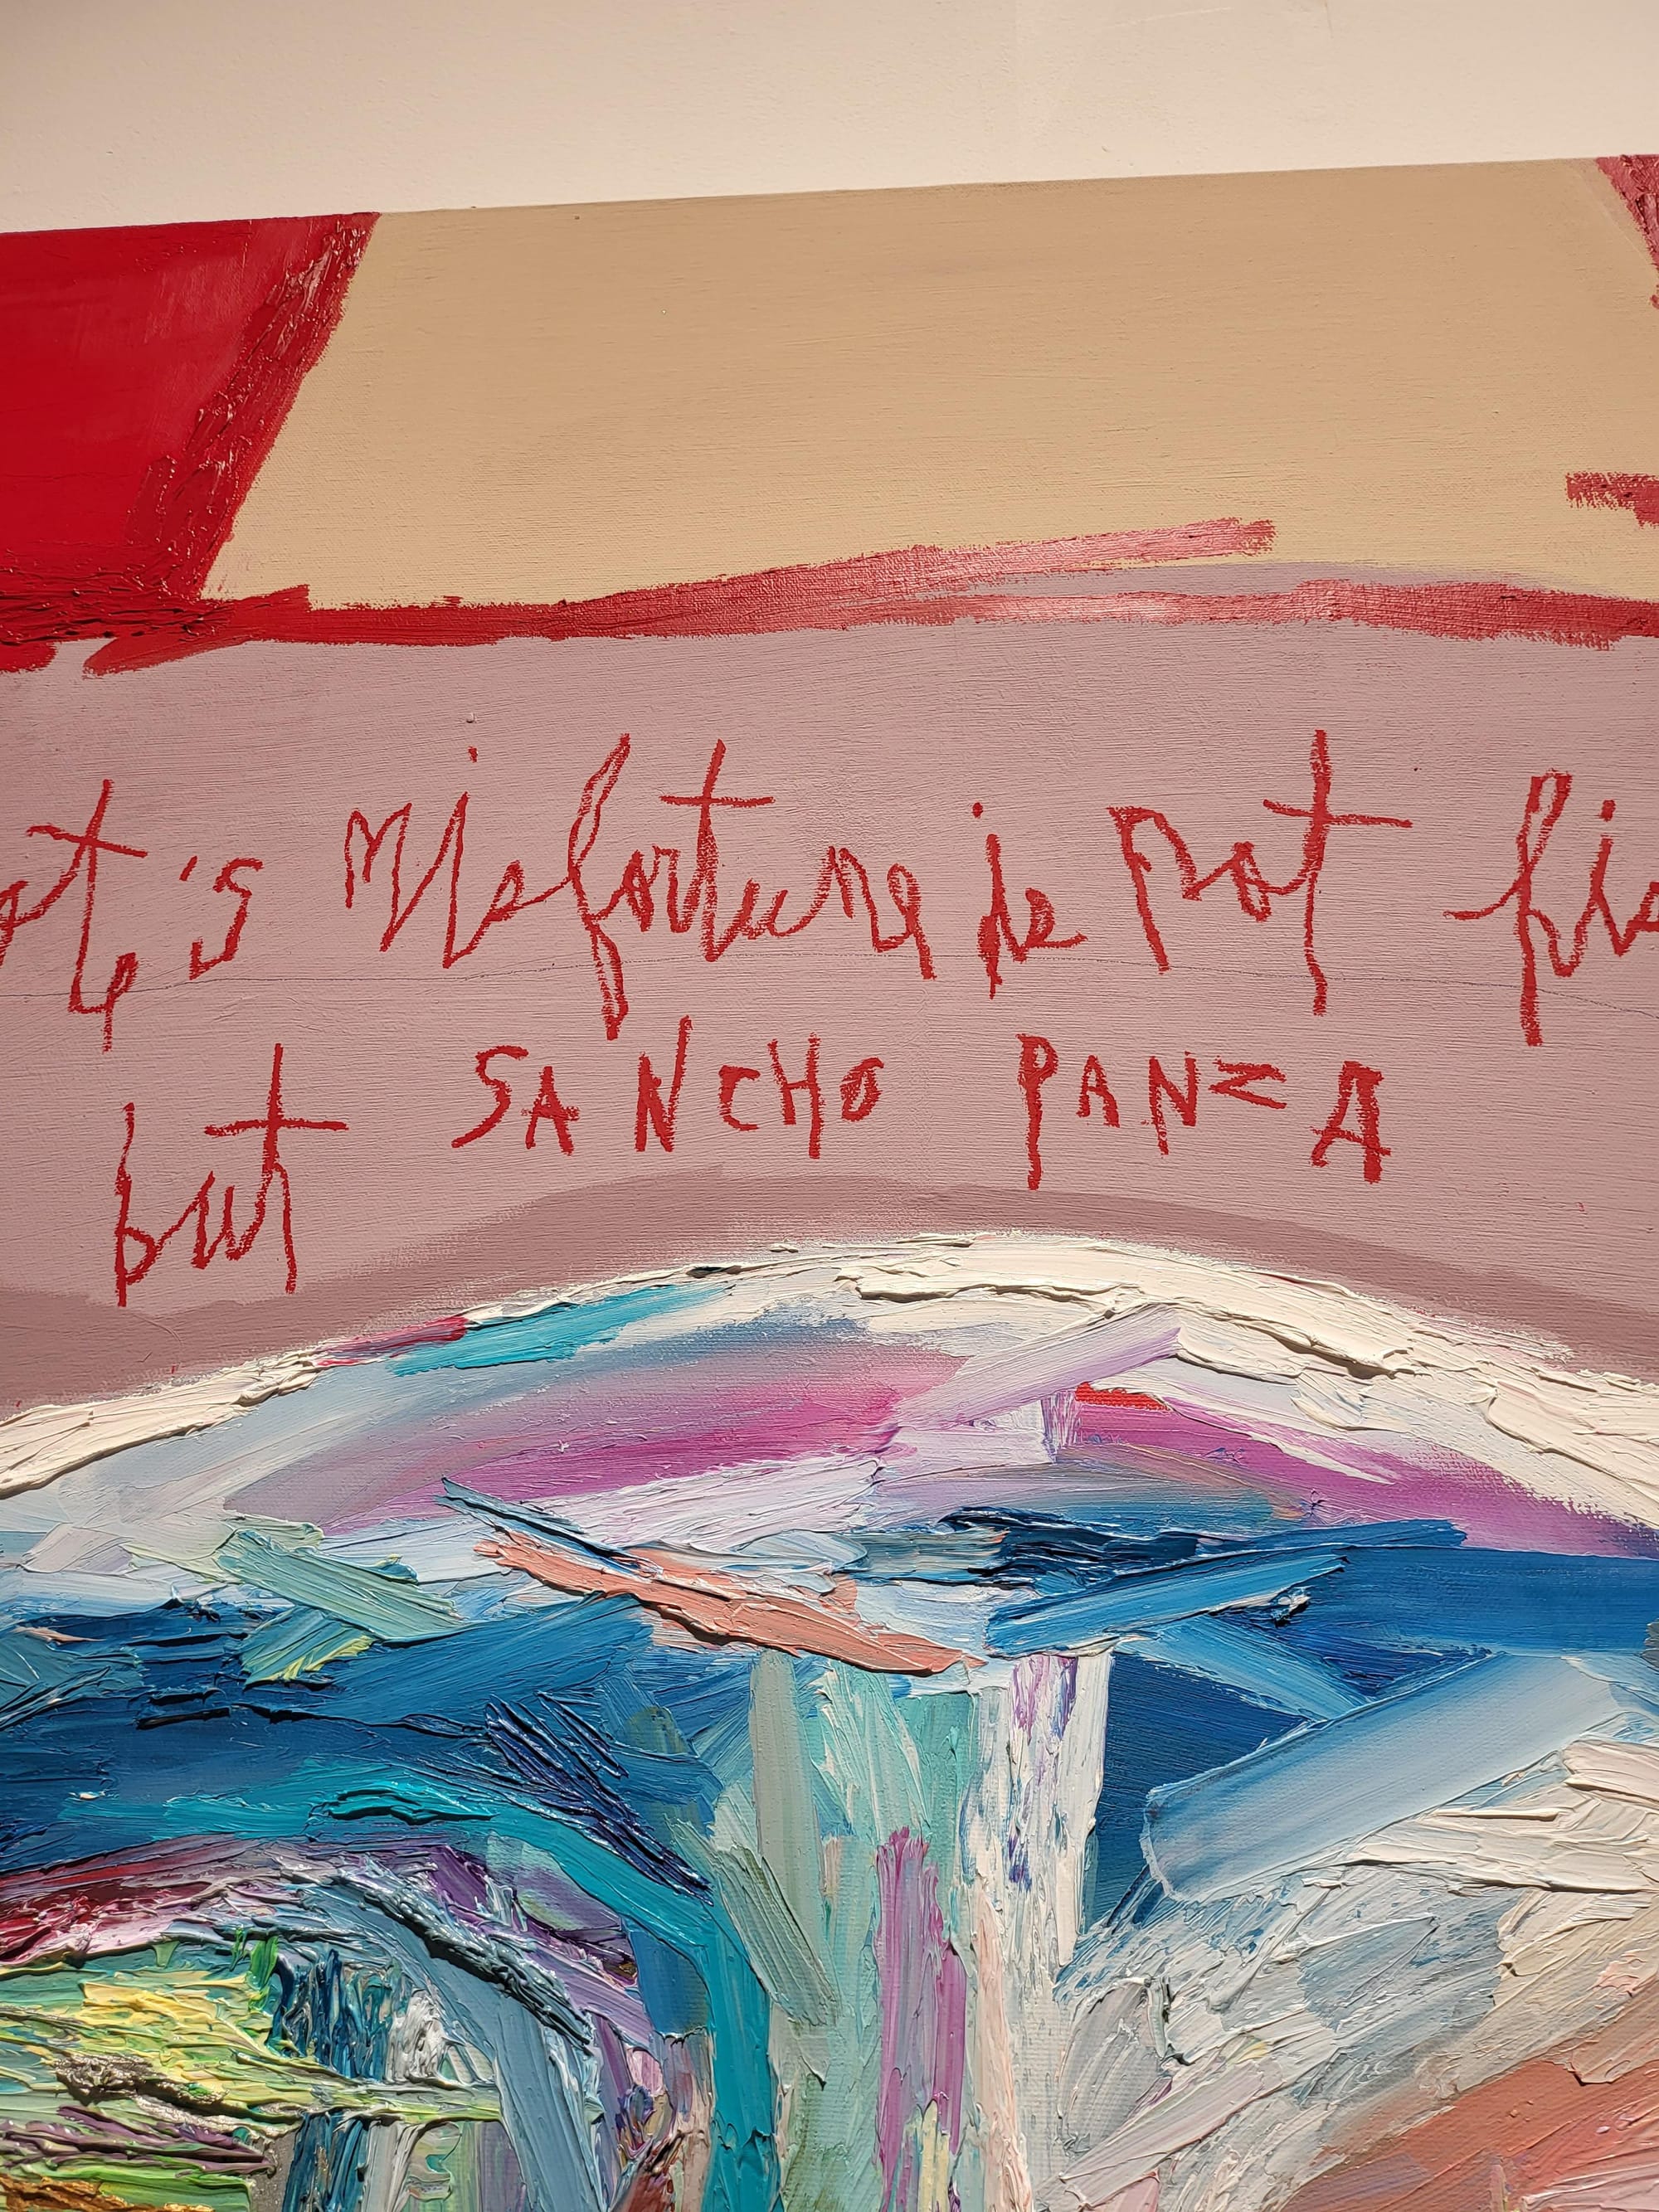 ote's Misfortune is not his
but SANCHO PANZA